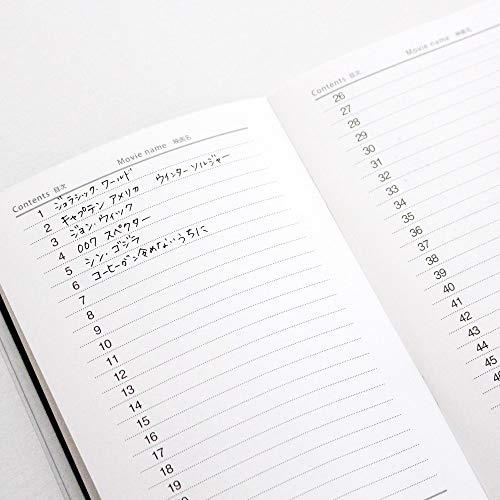 Contents 目次 Movie name 映画名
1 ジュラシック・ワールド
2 キャプテン アメリカ ウィンター ソルジャー
3 ジョン・ウィック
4 007 スペクター
5 シン・ゴジラ
6 コーヒーが冷めないうちに
7
8
9
10
11
12
13
14
15
16
17
18
19
Contents 目次 Movie name 映画名
26
27
28
29
30
31
32
33
34
35
36
37
38
39
40
41
42
43
44
45